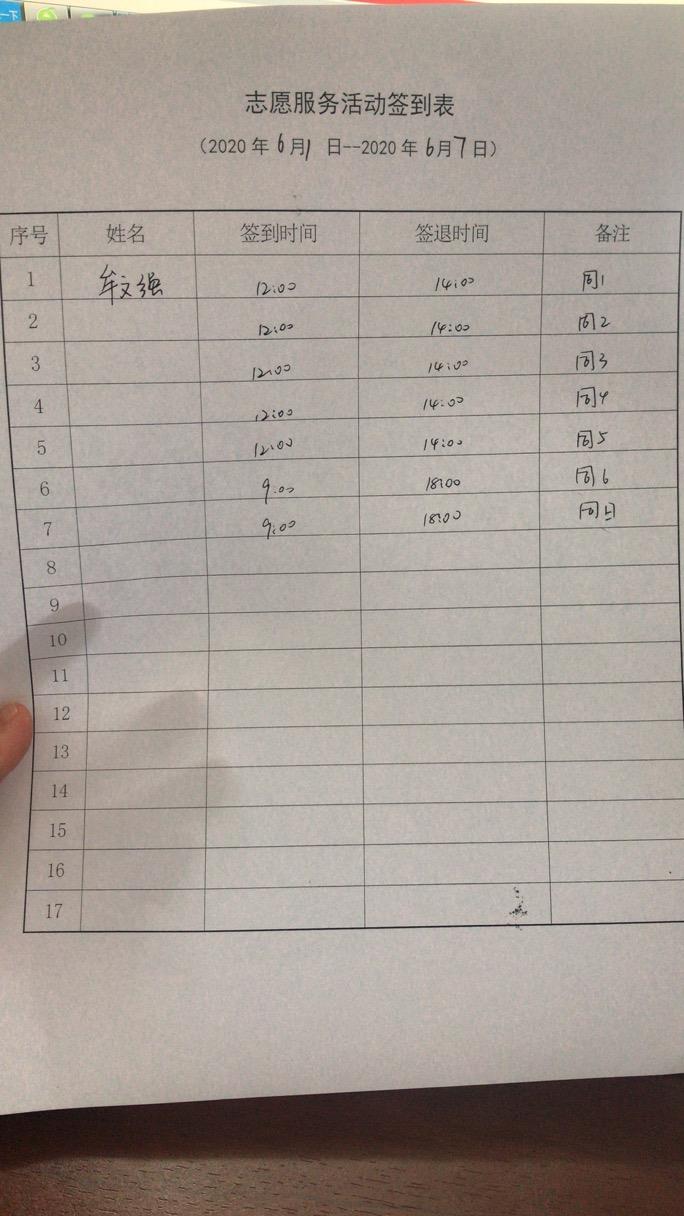 志愿服务活动签到表
(2020 年 6月1 日--2020 年 6月7日)
序号 姓名 签到时间 签退时间 备注
1 牟文强 12:00 14:00 周1
2 12:00 14:00 周2
3 12:00 14:00 周3
4 12:00 14:00 周4
5 12:00 14:00 周5
6 9:00 18:00 周6
7 9:00 18:00 周日
8
9
10
11
12
13
14
15
16
17